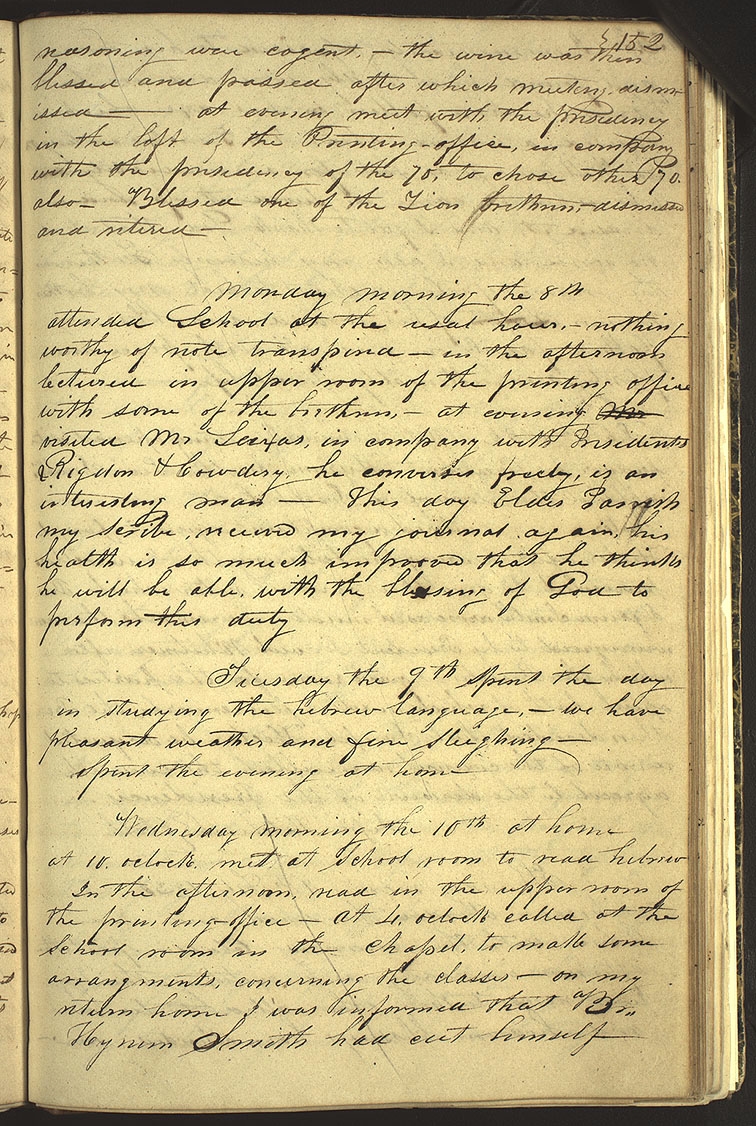 152
reasoning were cogent.— the wine was then
blessed and passed after which meeting, dismi-
issed— at evening meet with the presidency
in the loft of the Printing-office, in company
with the presidency of the 70, to chose other 70.
also— Blessed one of the Zion brethren,— dismissed
and retired—
Monday morning the 8th
attended School at the usual hour.— nothing
worthy of note transpired— in the afternoon
lectured in upper room of the printing office
with some of the brethren,— at evening Mr
visited Mr Seixas, in company with Presidents
Rigdon & Cowdery, he converses freely, is an
interesting man— This day Elder Parrish
my scribe, received my journal again, his
health is so much improved that he thinks
he will be able, with the blessing of God to
perform this duty
Tuesday the 9th spent the day
in studying the hebrew language,— we have
pleasant weather and fine sleighing—
spent the evening at home
Wednesday morning the 10th at home
at 10. oclock met at School room to read hebrew
In the afternoon, read in the upper room of
the printing-office— at 4. oclock called at the
School room in the chapel, to make some
arrangments, concerning the classes— on my
return home I was informed that Br.
Hyrum Smith had cut himself